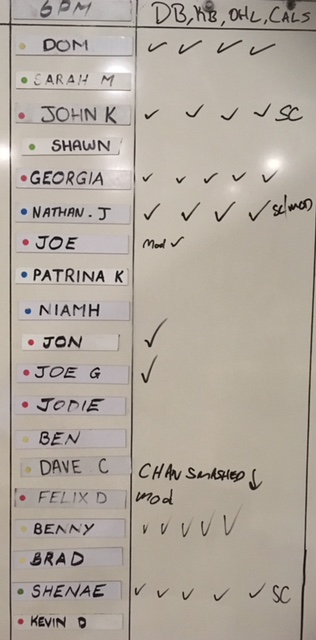 6PM DB, KB, OHL, CALS
DOM ✓ ✓ ✓ ✓
SARAH M
JOHN K ✓ ✓ ✓ ✓ SC
SHAWN
GEORGIA ✓ ✓ ✓ ✓ ✓
NATHAN. J ✓ ✓ ✓ ✓ SC/MOD
JOE Mod ✓
PATRINA K
NIAMH
JON ✓
JOE G ✓
JODIE
BEN
DAVE C CHAV SMASHED ↓
FELIX D Mod
BENNY ✓ ✓ ✓ ✓ ✓
BRAD
SHENAE ✓ ✓ ✓ ✓ ✓ SC
KEVIN D